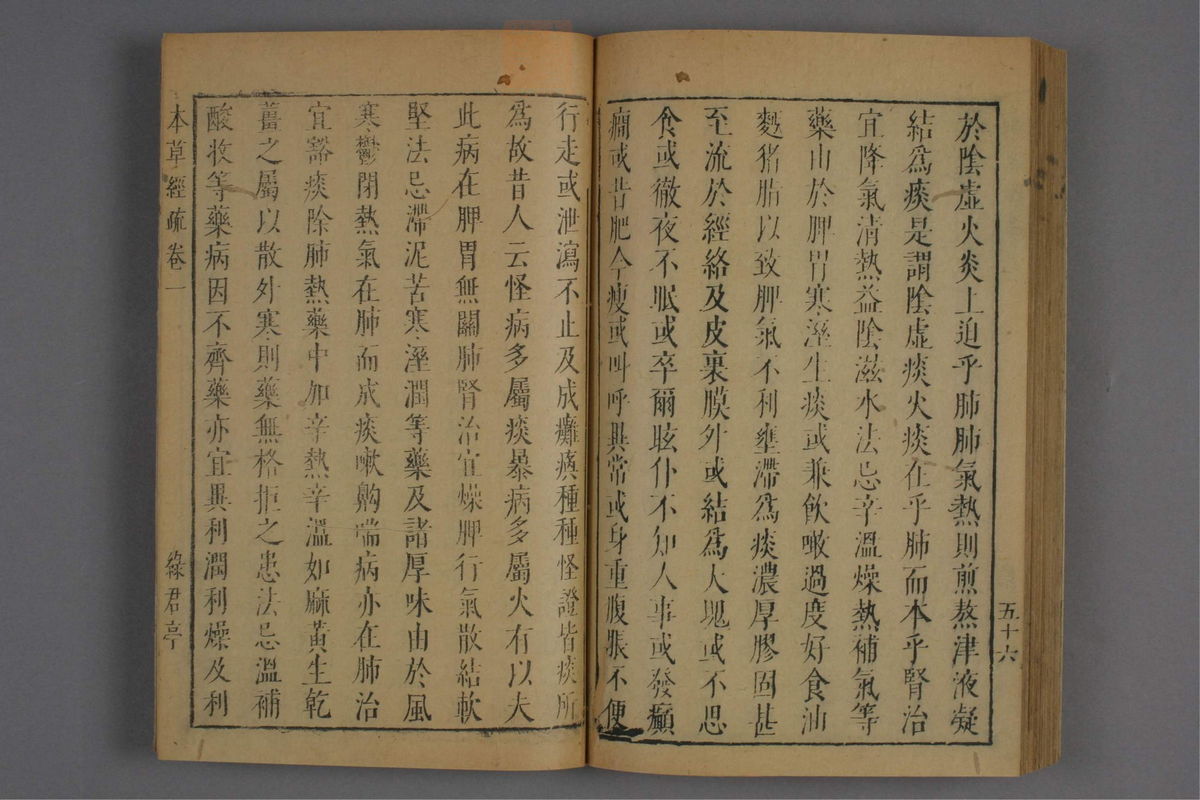 於陰虛火炎上迫乎肺肺氣熱則煎熬津液凝
結爲痰是謂陰虛痰火痰在乎肺而本乎腎治
宜降氣清熱益陰滋水法忌辛溫燥熱補氣等
藥由於脾胃寒溼生痰或兼飲啖過度好食油
麪猪脂以致脾氣不利壅滯爲痰濃厚膠固甚
至流於經絡及皮裏膜外或結爲大塊或不思
食或徹夜不眠或卒爾眩仆不知人事或發癲
癇或昔肥今瘦或叫呼異常或身重腹脹不便
五十六
行走或泄瀉不止及成癱瘓種種怪證皆痰所
爲故昔人云怪病多屬痰暴病多屬火有以夫
此病在脾胃無關肺腎治宜燥脾行氣散結軟
堅法忌滯泥苦寒溼潤等藥及諸厚味由於風
寒鬱閉熱氣在肺而成痰嗽齁喘病亦在肺治
宜豁痰除肺熱藥中加辛熱辛溫如麻黃生乾
薑之屬以散外寒則藥無格拒之患法忌溫補
酸收等藥病因不齊藥亦宜異利潤利燥及利
本草經疏卷一
綠君亭